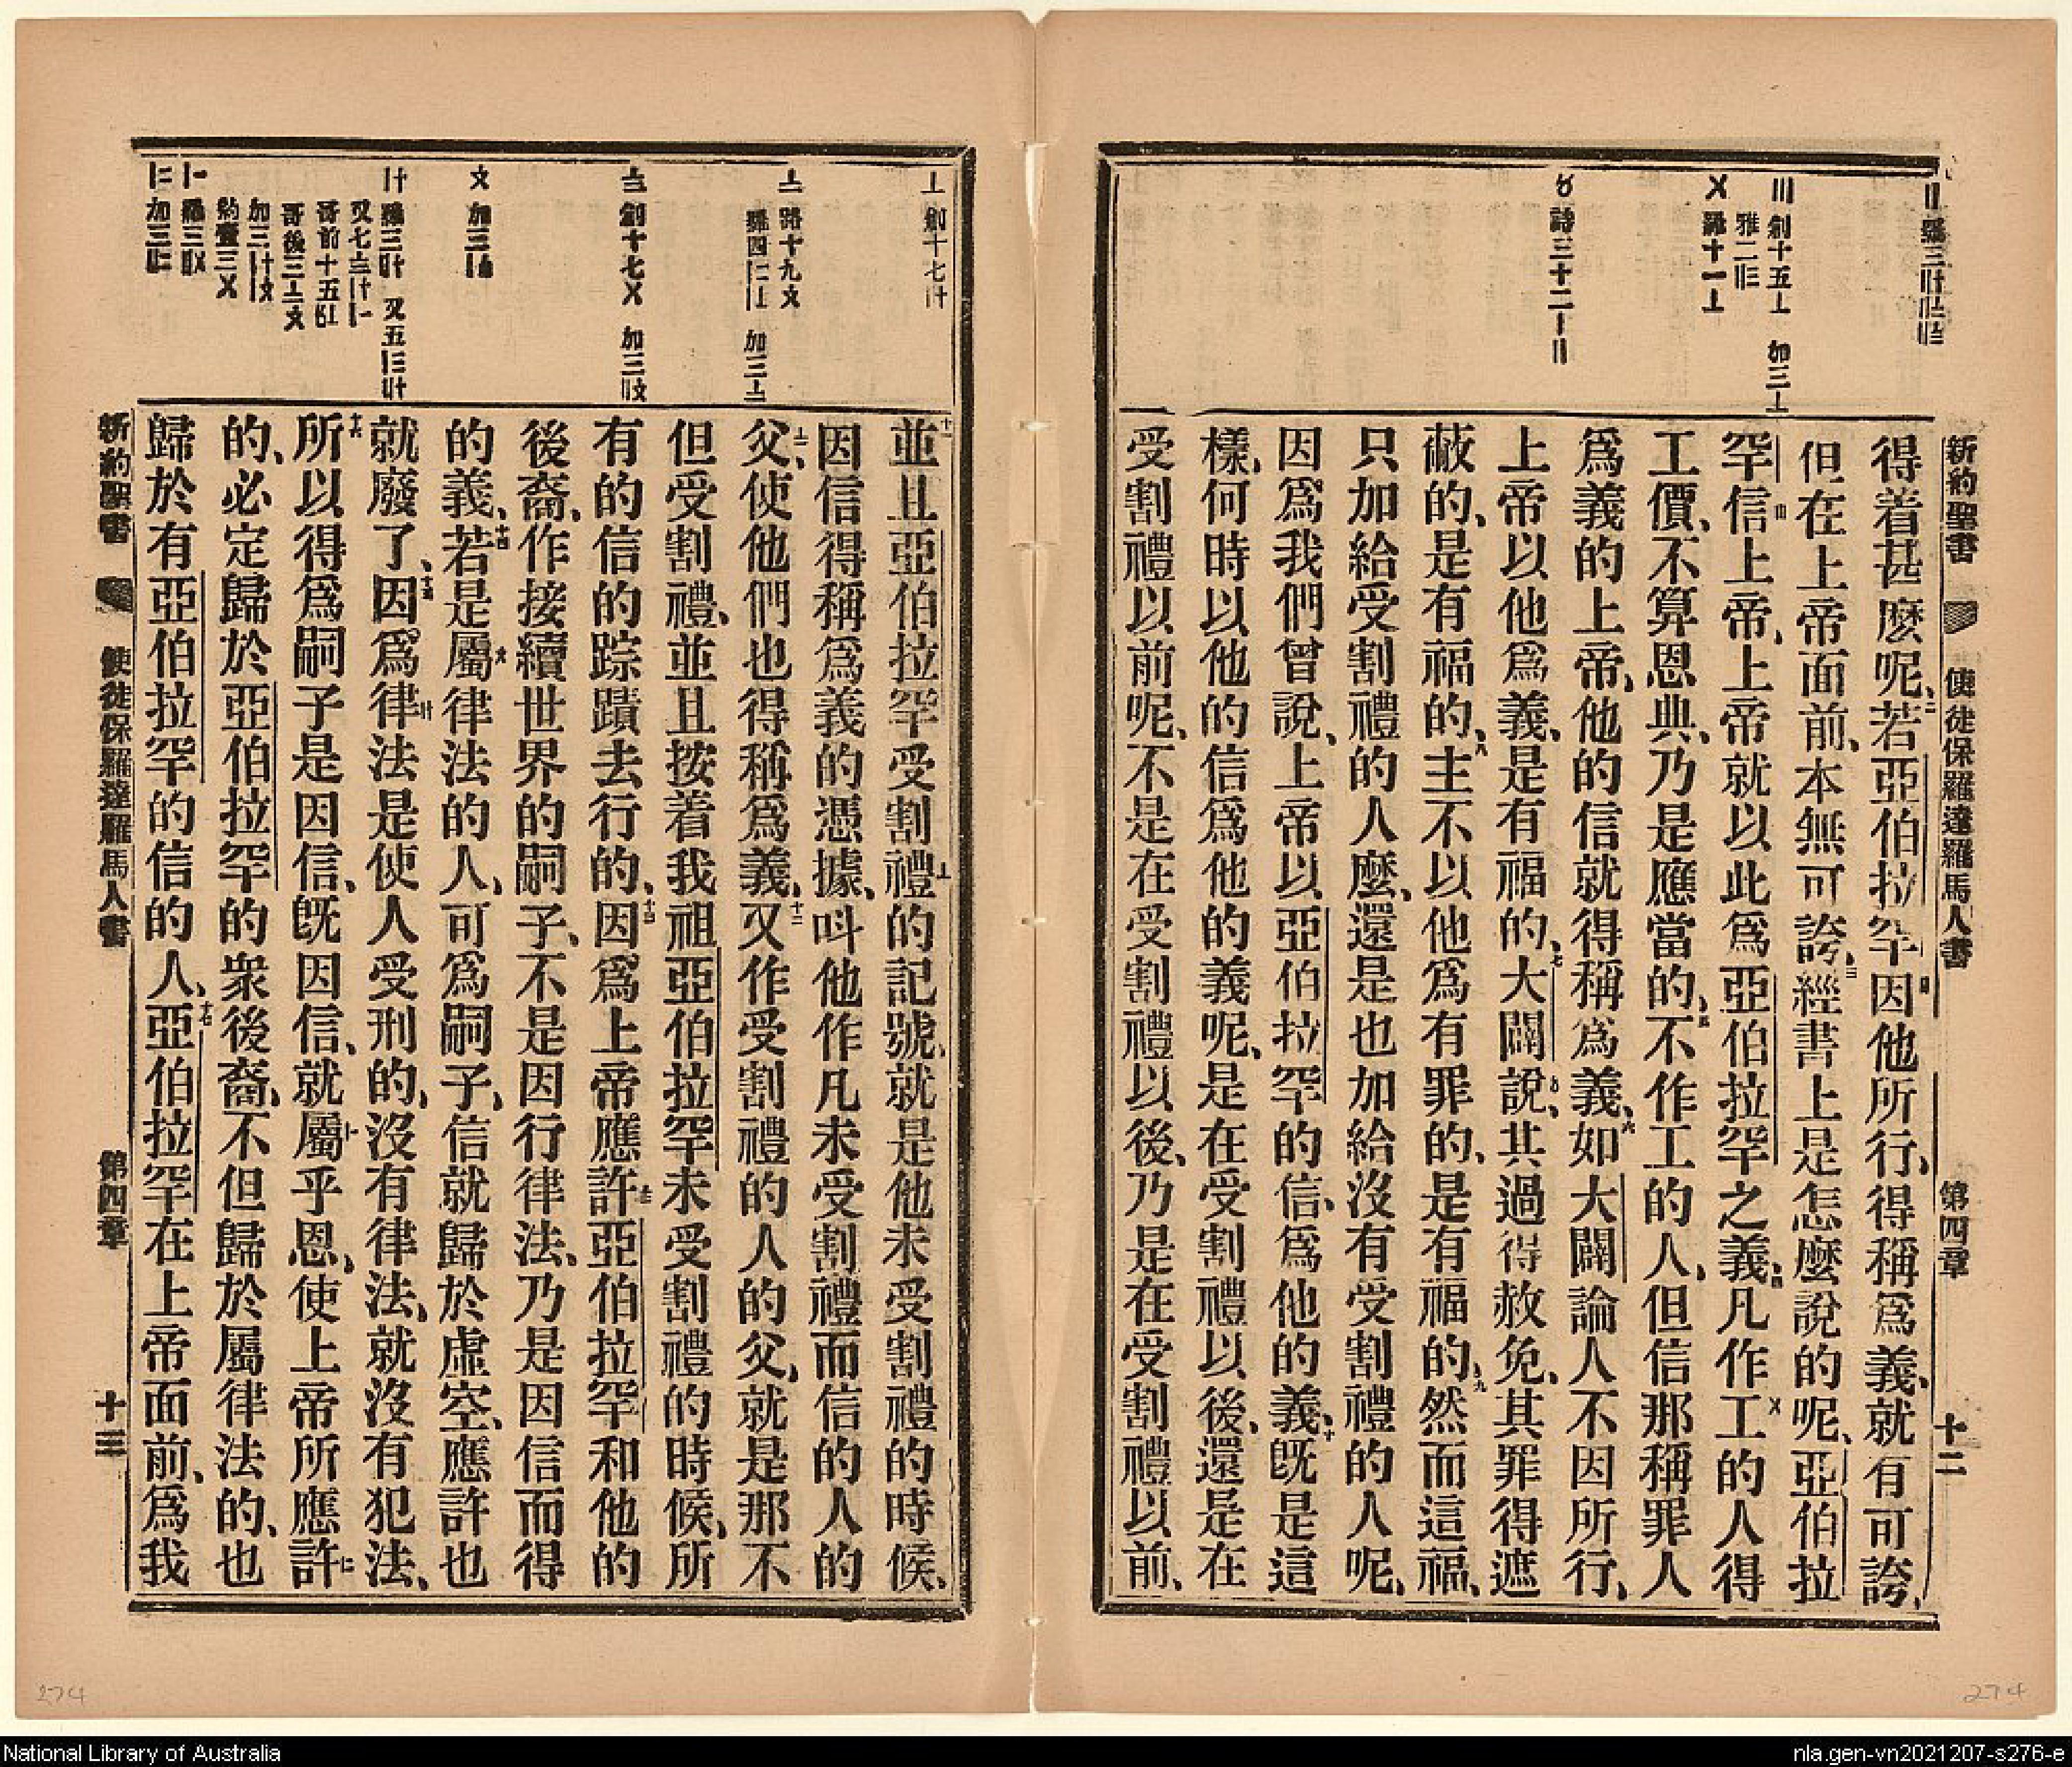 新約聖書 使徒保羅達羅馬人書 第四章 十二
得着甚麽呢、二若亞伯拉罕因他所行、得稱爲義、就有可誇、
但在上帝面前、本無可誇、三經書上是怎麽說的呢、亞伯拉
罕信上帝、上帝就以此爲亞伯拉罕之義、四凡作工的人得
工價、不算恩典、乃是應當的、五不作工的人、但信那稱罪人
爲義的上帝、他的信就得稱爲義、六如大闢論人不因所行、
上帝以他爲義、是有福的、七大闢說、其過得赦免、其罪得遮
蔽的、是有福的、八主不以他爲有罪的、是有福的、九然而這福、
只加給受割禮的人麽、還是也加給沒有受割禮的人呢、
因爲我們曾說、上帝以亞伯拉罕的信、爲他的義、十旣是這
樣、何時以他的信爲他的義呢、是在受割禮以後、還是在
受割禮以前呢、不是在受割禮以後、乃是在受割禮以前、
〣 創十五〦 加三〦
雅二
〤 羅十一〦
詩三十二
十一並且亞伯拉罕受割禮的記號、就是他未受割禮的時候、
因信得稱爲義的憑據、呌他作凡未受割禮而信的人的
父、使他們也得稱爲義、十二又作受割禮的人的父、就是那不
但受割禮、並且按着我祖亞伯拉罕未受割禮的時候、所
有的信的踪蹟去行的、十三因爲上帝應許亞伯拉罕和他的
後裔、作接續世界的嗣子、不是因行律法、乃是因信而得
的義、十四若是屬律法的人、可爲嗣子、信就歸於虛空、應許也
就廢了、十五因爲律法是使人受刑的、沒有律法、就沒有犯法、
十六所以得爲嗣子是因信、旣因信、就屬乎恩、使上帝所應許
的、必定歸於亞伯拉罕的衆後裔、不但歸於屬律法的、也
歸於有亞伯拉罕的信的人、十七亞伯拉罕在上帝面前、爲我
新約聖書 使徒保羅達羅馬人書 第四章 十三
274
274
National Library of Australia
nla.gen-vn2021207-s276-e